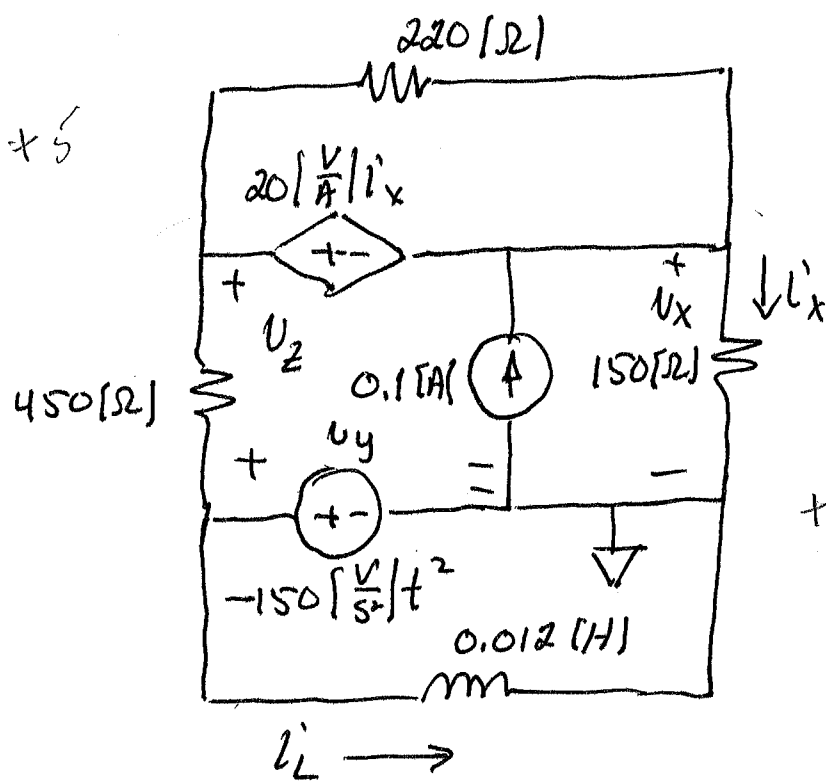 220[Ω]
+5
20[V/A]i_x
+ -
+
v_z
+
v_x
i_x
450[Ω]
0.1[A]
150[Ω]
+
v_y
-
-
-
+ -
+
-150[V/s²]t²
0.012[H]
i_L